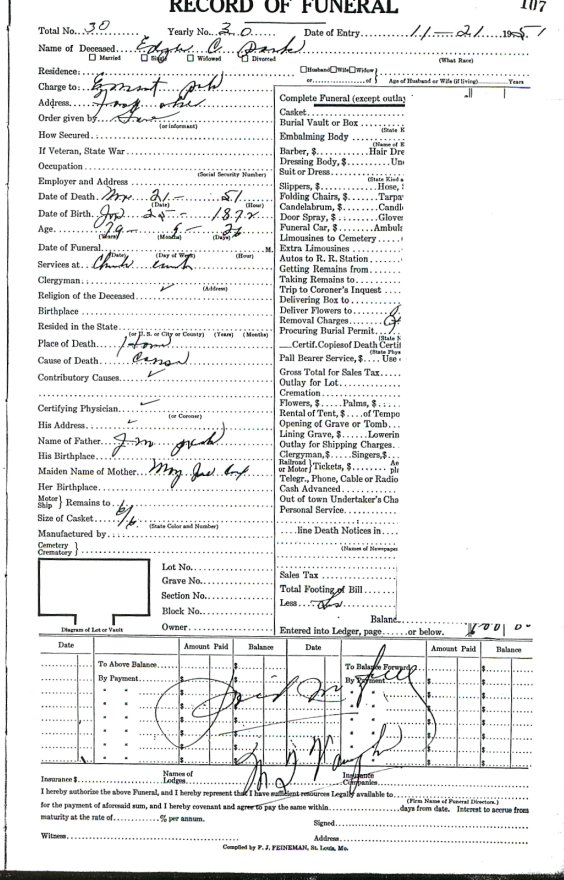 RECORD OF FUNERAL 107
Total No. 30 Yearly No. 20 Date of Entry 11-21 1951
Name of Deceased C.
Married Single Widowed Divorced (What Race)
Residence: Husband Wife Widow
or of Age of Husband or Wife (if living) Years
Charge to:
Address
Order given by
(or informant)
How Secured
If Veteran, State War
Occupation
(Social Security Number)
Employer and Address
Date of Death Nov 21- 51
(Date) (Hour)
Date of Birth 25- 1872
Age 79-
(Years) (Months) (Days)
Date of Funeral M.
(Date) (Day of Week) (Hour)
Services at Church
Clergyman
(Address)
Religion of the Deceased
Birthplace
Resided in the State
(or U. S. or City or County) (Years) (Months)
Place of Death Home
Cause of Death
Contributory Causes
Certifying Physician
(or Coroner)
His Address
Name of Father J. M.
His Birthplace
Maiden Name of Mother
Her Birthplace
Motor Ship } Remains to
Size of Casket
(State Color and Number)
Manufactured by
Cemetery Crematory }
Lot No.
Grave No.
Section No.
Block No.
Owner
Diagram of Lot or Vault
Complete Funeral (except outlay
Casket
Burial Vault or Box
(State K
Embalming Body
(Name of E
Barber, $ Hair Dre
Dressing Body, $ Un
Suit or Dress
(State Kind a
Slippers, $ Hose,
Folding Chairs, $ Tarpa
Candelabrum, $ Candl
Door Spray, $ Glove
Funeral Car, $ Ambul
Limousines to Cemetery
Extra Limousines
Autos to R. R. Station
Getting Remains from
Taking Remains to
Trip to Coroner's Inquest
Delivering Box to
Deliver Flowers to
Removal Charges
Procuring Burial Permit
(State N
Certif. Copies of Death Certif
(State Phys
Pall Bearer Service, $ Use
Gross Total for Sales Tax
Outlay for Lot
Cremation
Flowers, $ Palms, $
Rental of Tent, $ of Tempo
Opening of Grave or Tomb
Lining Grave, $ Lowerin
Outlay for Shipping Charges
Clergyman, $ Singers, $
Railroad or Motor } Tickets, $
Telegr., Phone, Cable or Radio
Cash Advanced
Out of town Undertaker's Cha
Personal Service
line Death Notices in
(Names of Newspaper
Sales Tax
Total Footing of Bill
Less
Balanc
Entered into Ledger, page or below.
Date Amount Paid Balance Date Amount Paid Balance
To Above Balance $ To Balance Forward $
By Payment $ By Payment $
Paid in full
Insurance $ Names of Lodges Insurance Companies
I hereby authorize the above Funeral, and I hereby represent that I have sufficient resources Legally available to
(Firm Name of Funeral Directors.)
for the payment of aforesaid sum, and I hereby covenant and agree to pay the same within days from date. Interest to accrue from
maturity at the rate of % per annum. Signed
Witness Address
Compiled by F. J. FEINEMAN, St. Louis, Mo.